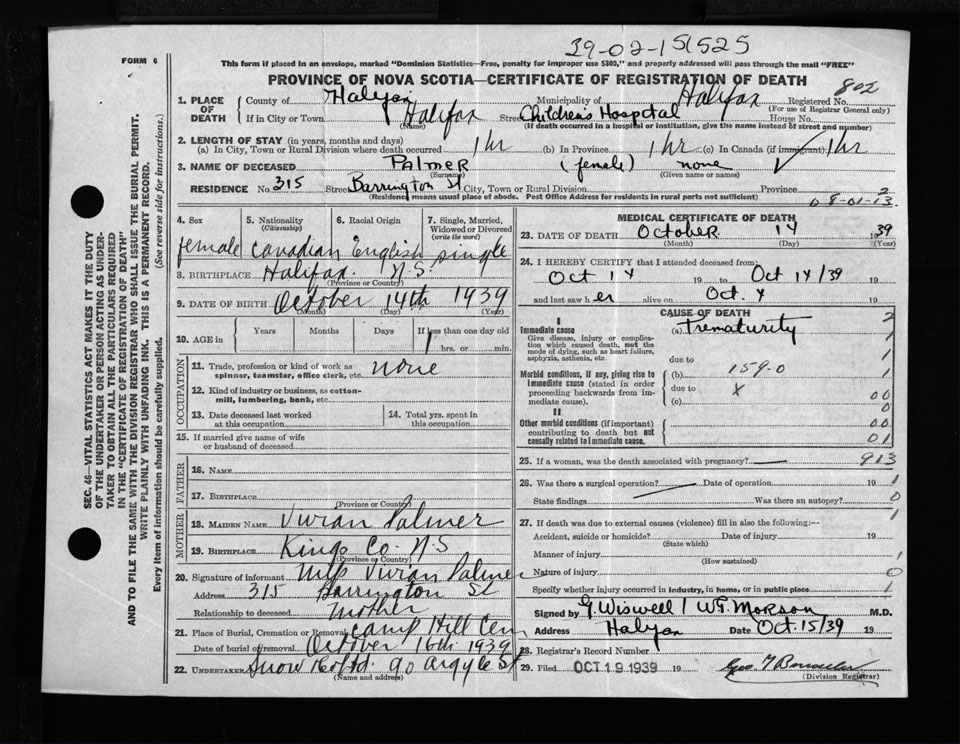 39-02-151525
FORM 6
This form if placed in an envelope, marked "Dominion Statistics—Free, penalty for improper use $300," and properly addressed will pass through the mail "FREE"
PROVINCE OF NOVA SCOTIA—CERTIFICATE OF REGISTRATION OF DEATH
802
1. PLACE OF DEATH County of Halifax Municipality of Halifax Registered No.
(For use of Registrar General only)
If in City or Town Halifax Street Children's Hospital House No.
(Name) (If death occurred in a hospital or institution, give the name instead of street and number)
2. LENGTH OF STAY (in years, months and days)
(a) In City, Town or Rural Division where death occurred 1 hr (b) In Province 1 hr (c) In Canada (if immigrant) 1 hr
3. NAME OF DECEASED Palmer (female) none
(Surname) (Given name or names)
RESIDENCE No. 315 Street Barrington St City, Town or Rural Division Province 2
(Residence means usual place of abode. Post Office Address for residents in rural parts not sufficient) 08-01-13
SEC. 46—VITAL STATISTICS ACT MAKES IT THE DUTY
OF THE UNDERTAKER OR PERSON ACTING AS UNDER-
TAKER TO OBTAIN ALL THE PARTICULARS REQUIRED
IN THE "CERTIFICATE OF REGISTRATION OF DEATH"
AND TO FILE THE SAME WITH THE DIVISION REGISTRAR WHO SHALL ISSUE THE BURIAL PERMIT.
WRITE PLAINLY WITH UNFADING INK. THIS IS A PERMANENT RECORD.
Every item of information should be carefully supplied. (See reverse side for instructions.)
4. Sex 5. Nationality (Citizenship) 6. Racial Origin 7. Single, Married, Widowed or Divorced (write the word)
female Canadian English single
8. BIRTHPLACE Halifax N.S.
(Province or Country)
9. DATE OF BIRTH October 14th 1939
(Month) (Day) (Year)
10. AGE Years Months Days If less than one day old
1 hrs. or min.
OCCUPATION
11. Trade, profession or kind of work as spinner, teamster, office clerk, etc. none
12. Kind of industry or business, as cotton-mill, lumbering, bank, etc.
13. Date deceased last worked at this occupation 14. Total yrs. spent in this occupation
15. If married give name of wife or husband of deceased
FATHER
16. NAME
17. BIRTHPLACE
(Province or Country)
MOTHER
18. MAIDEN NAME Vivian Palmer
19. BIRTHPLACE Kings Co. N.S
(Province or Country)
20. Signature of informant Miss Vivian Palmer
Address 315 Barrington St
Relationship to deceased Mother
21. Place of Burial, Cremation or Removal Camp Hill Cem
Date of burial or removal October 16th 1939
22. UNDERTAKER Snow Co Ltd. 90 Argyle St
(Name and address)
MEDICAL CERTIFICATE OF DEATH
23. DATE OF DEATH October 14 1939
(Month) (Day) (Year)
24. I HEREBY CERTIFY that I attended deceased from:
Oct 14 19 to Oct 14/39 19
and last saw her alive on Oct. 19
CAUSE OF DEATH
I
Immediate cause (a) Prematurity
Give disease, injury or complication which caused death, not the mode of dying, such as heart failure, asphyxia, asthenia, etc.
due to
Morbid conditions, if any, giving rise to immediate cause (stated in order proceeding backwards from immediate cause). (b) 159.0
due to X
(c)
II
Other morbid conditions (if important) contributing to death but not causally related to immediate cause.
2
1
1
1
00
0
00
01
25. If a woman, was the death associated with pregnancy? 913
26. Was there a surgical operation? Date of operation 19 1
State findings Was there an autopsy? 0
27. If death was due to external causes (violence) fill in also the following:— 1
Accident, suicide or homicide? Date of injury 19
(State which)
Manner of injury 1
(How sustained)
Nature of injury 0
Specify whether injury occurred in industry, in home, or in public place 1
Signed by G. Wiswell / W.G. Morson M.D.
Address Halifax Date Oct. 15/39 19
28. Registrar's Record Number
29. Filed OCT 19 1939 19
(Division Registrar)